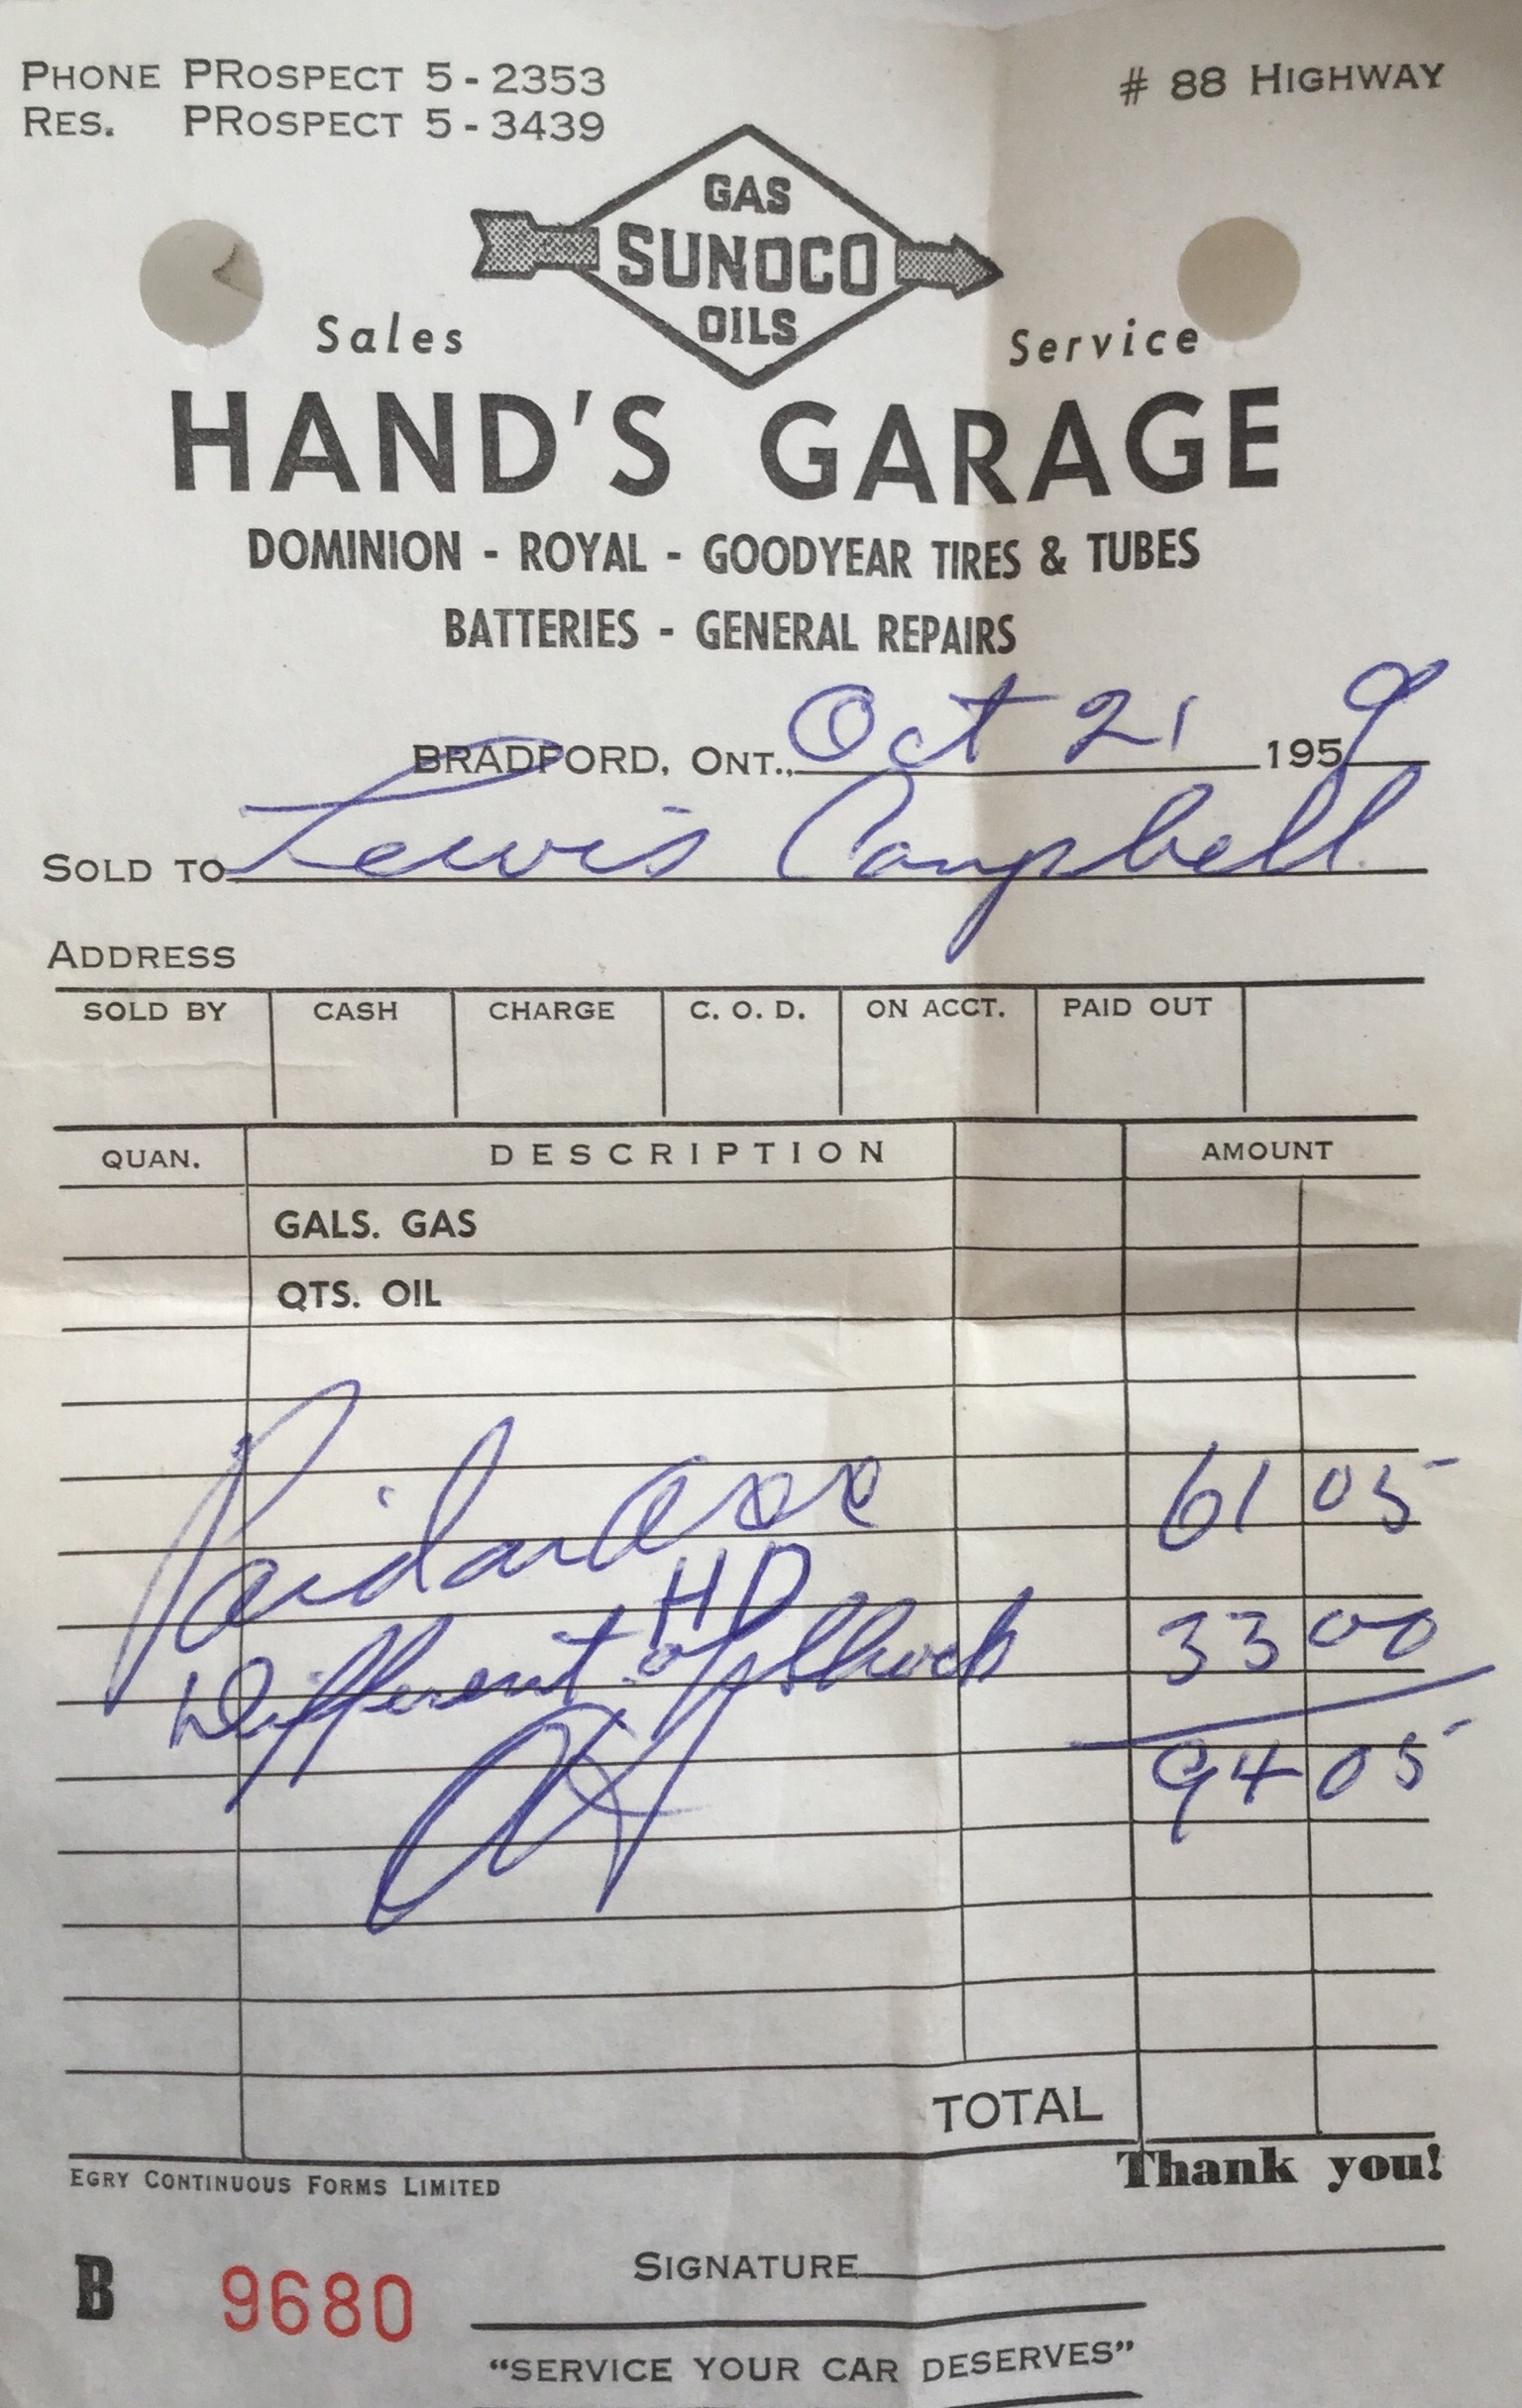 PHONE PROSPECT 5-2353
# 88 HIGHWAY
RES. PROSPECT 5-3439
GAS
SUNOCO
OILS
Sales Service
HAND'S GARAGE
DOMINION - ROYAL - GOODYEAR TIRES & TUBES
BATTERIES - GENERAL REPAIRS
BRADFORD, ONT., Oct 21 1959
SOLD TO Lewis Campbell
ADDRESS
SOLD BY CASH CHARGE C. O. D. ON ACCT. PAID OUT
QUAN. DESCRIPTION AMOUNT
GALS. GAS
QTS. OIL
Paid 61 05
HD
Different of Shock 33 00
94 05
TOTAL
Thank you!
EGRY CONTINUOUS FORMS LIMITED
SIGNATURE
B 9680
"SERVICE YOUR CAR DESERVES"